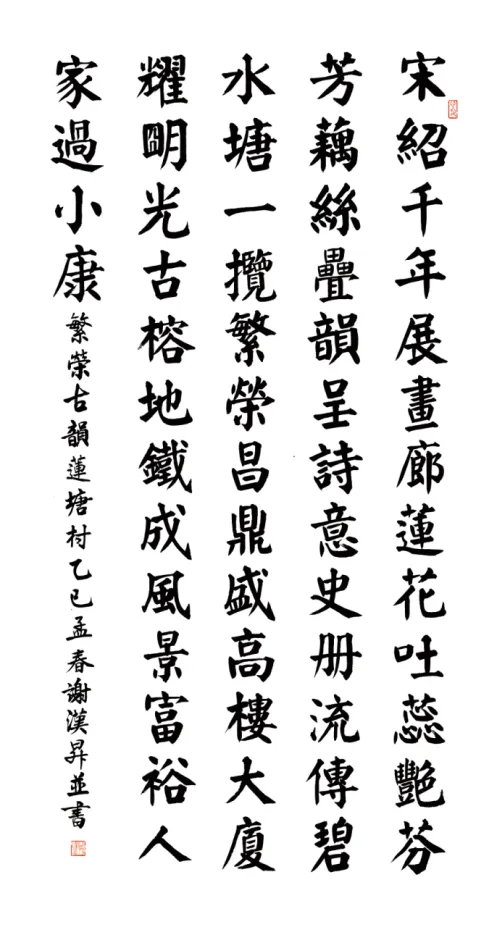 宋紹千年展畫廊蓮花吐蕊艷芬
芳藕絲疊韻呈詩意史册流傳碧
水塘一攬繁榮昌鼎盛高樓大廈
耀明光古榕地鐵成風景富裕人
家過小康
繁榮古韻蓮塘村乙巳孟春謝漢昇並書